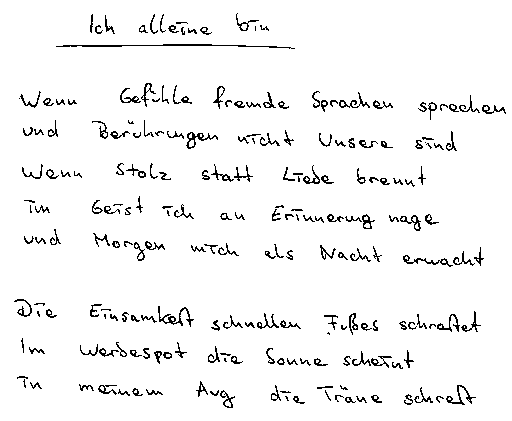 Ich alleine bin
Wenn Gefühle fremde Sprachen sprechen
und Berührungen nicht Unsere sind
Wenn Stolz statt Liebe brennt
im Geist ich an Erinnerung nage
und Morgen mich als Nacht erwacht
Die Einsamkeit schnellen Fußes schreitet
Im Werbespot die Sonne scheint
in meinem Aug die Träne schreit